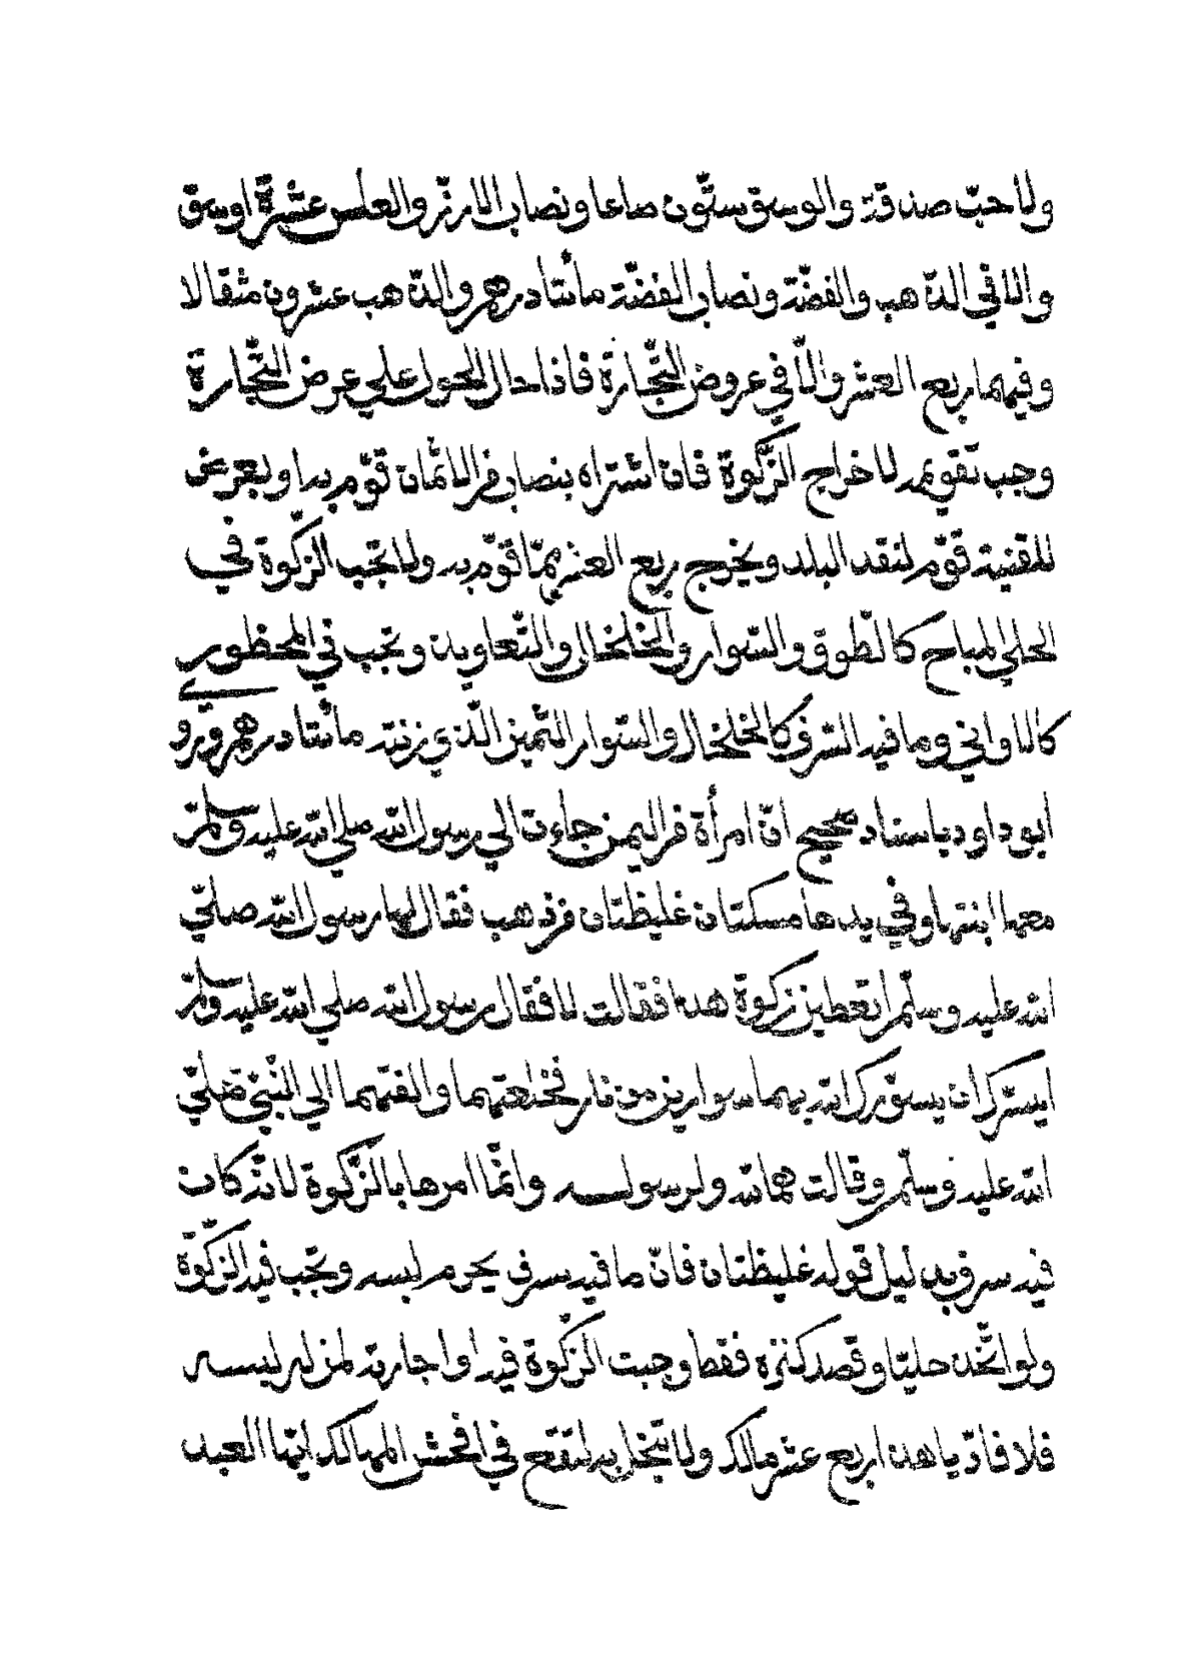 ولا حبّ صدقة والوسق ستّون صاعا ونصاب الارزّ والعلس عشرة اوسق
والا في الذهب والفضّة ونصاب الفضّة مائتا درهم والذّهب عشرون مثقالا
وفيهما ربع العشر والّا في عروض التّجارة فاذا حال الحول علي عرض التّجارة
وجب تقويمه لاخراج الزّكوة فان اشتراه بنصاب من الاثمان قوّم به او بعرض
للقنية قوّم لنقد البلد ويخرج ربع العشر ممّا قوّم به ولا تجب الزّكوة في
الحلي المباح كالطّوق والسّوار والخلخال والتّعاويذ وتجب في المحظور
كالاواني وما فيه السّرف كالخلخال والسّوار الثّمين الّذي زنته مائتا درهم وروي
أبو داود باسناد صحيح انّ امرأة من اليمن جاءت الي رسول الله صلي الله عليه وسلم
معها ابنتها وفي يدها مسكتان غليظتان من ذهب فقال لها رسول الله صلّي
الله عليه وسلّم اتعطين زكوة هذا فقالت لا فقال رسول الله صلي الله عليه وسلم
ايسرّك ان يسوّرك الله بهما سوارين من نار فخلعتهما والقتهما الي النّبيّ صلّي
الله عليه وسلّم وقالت هما لله ولرسوله وانّما امرها بالزّكوة لانّه كان
فيه سرف بدليل قوله غليظتان فانّ ما فيه سرف يحرم لبسه وتجب فيه الزّكوة
ولو اتّخذ حليّا وقصد كنزه فقط وجبت الزّكوة فيه او اجارته لمن له لبسه
فلا فادّ يا هذا ربع عشر مالك ولا تبخل به لتقتحم في افحش المهالك ايّها العبد